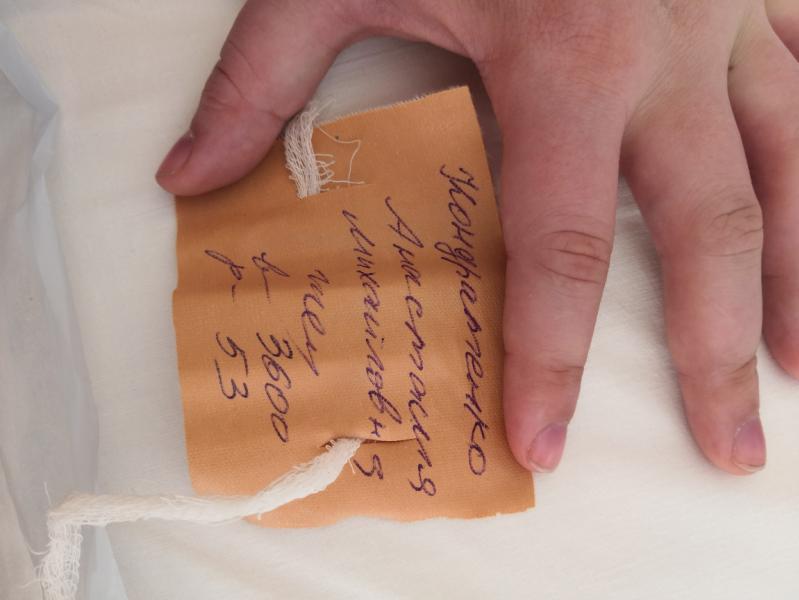 Кондратенко
Анастасия
Михайловна
в- 3600
р- 53